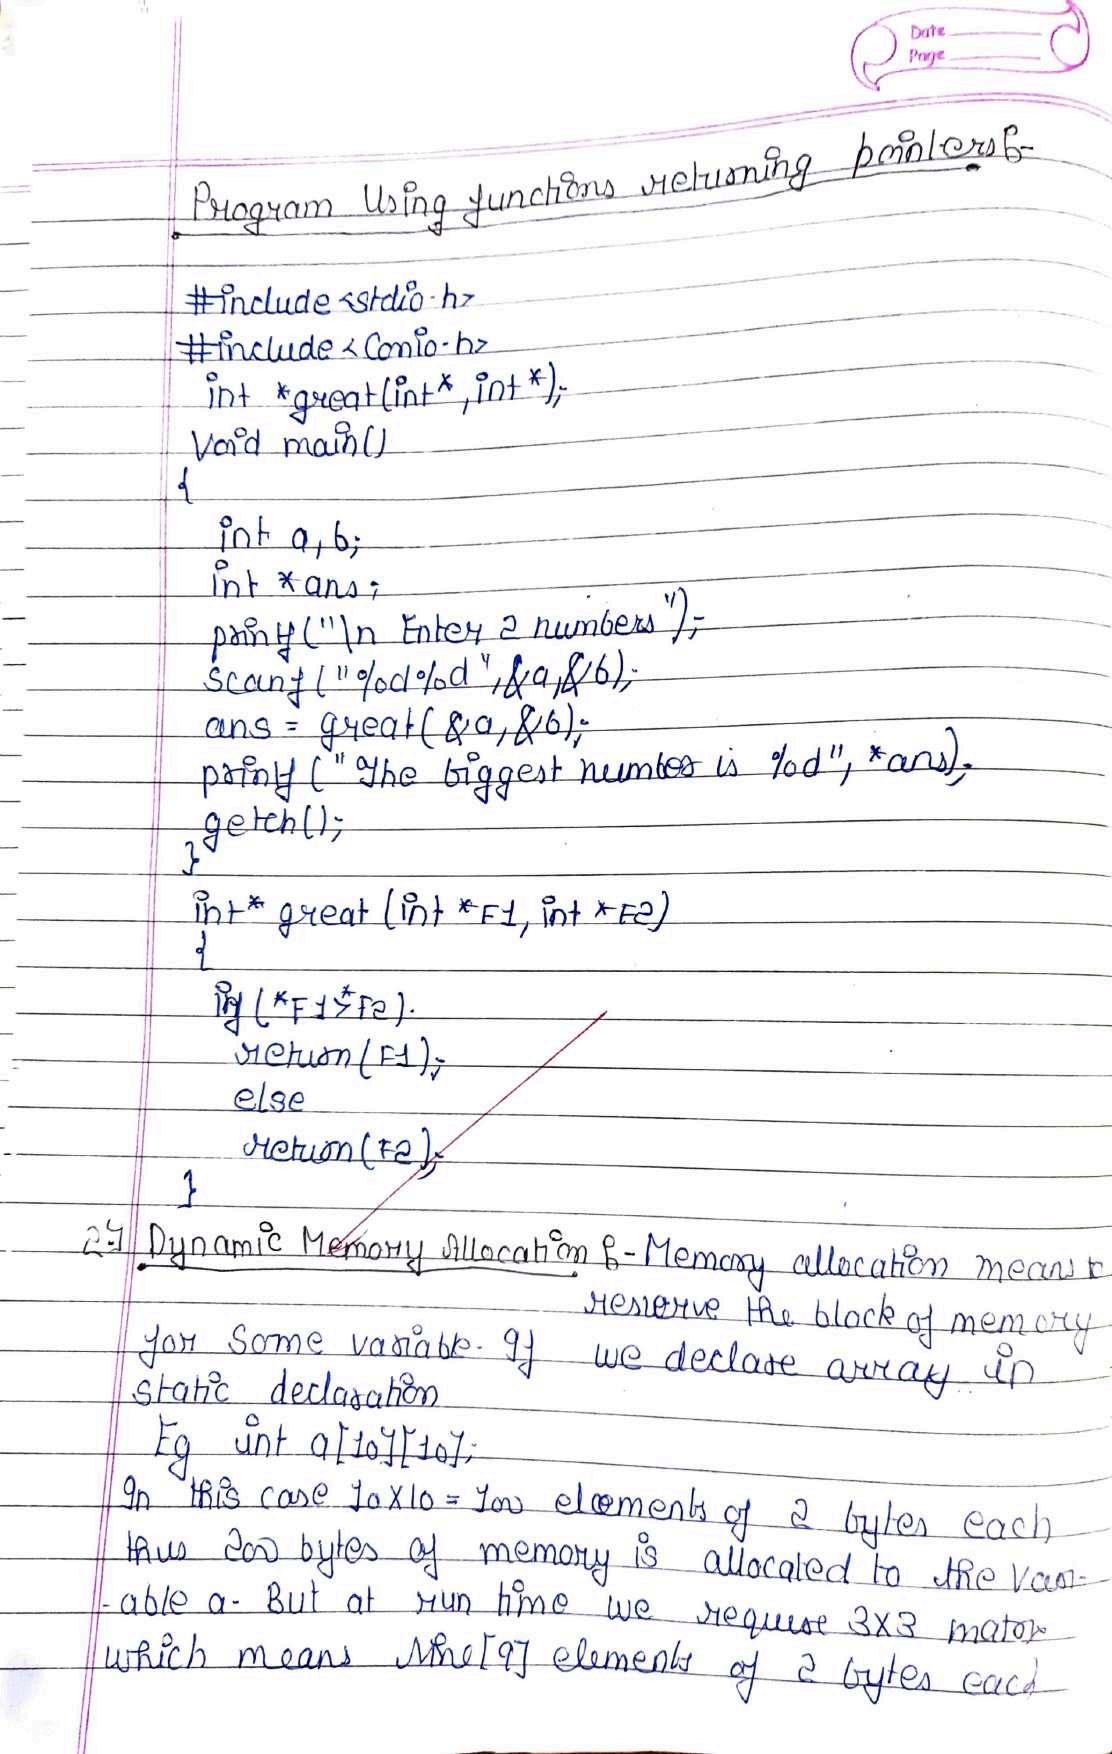 Date
Page
Program Using functions returning pointers:-
#include<stdio.h>
#include<Conio.h>
int *great(int*,int*);
Void main()
{
int a,b;
int *ans;
printf("\n Enter 2 numbers");
Scanf("%d%d",&a,&b);
ans = great(&a,&b);
printf("The biggest number is %d", *ans);
getch();
}
int* great (int *F1, int *F2)
{
if (*F1>*F2).
return(F1);
else
return(F2);
}
2:-] Dynamic Memory Allocation :- Memory allocation means
reserve the block of memory
for Some variable. If we declare array in
static declaration
Eg int a[10][10];
In this case 10X10 = 100 elements of 2 bytes each
thus 200 bytes of memory is allocated to the vari-
-able a. But at run time we require 3X3 matrix
which means Nine[9] elements of 2 bytes each